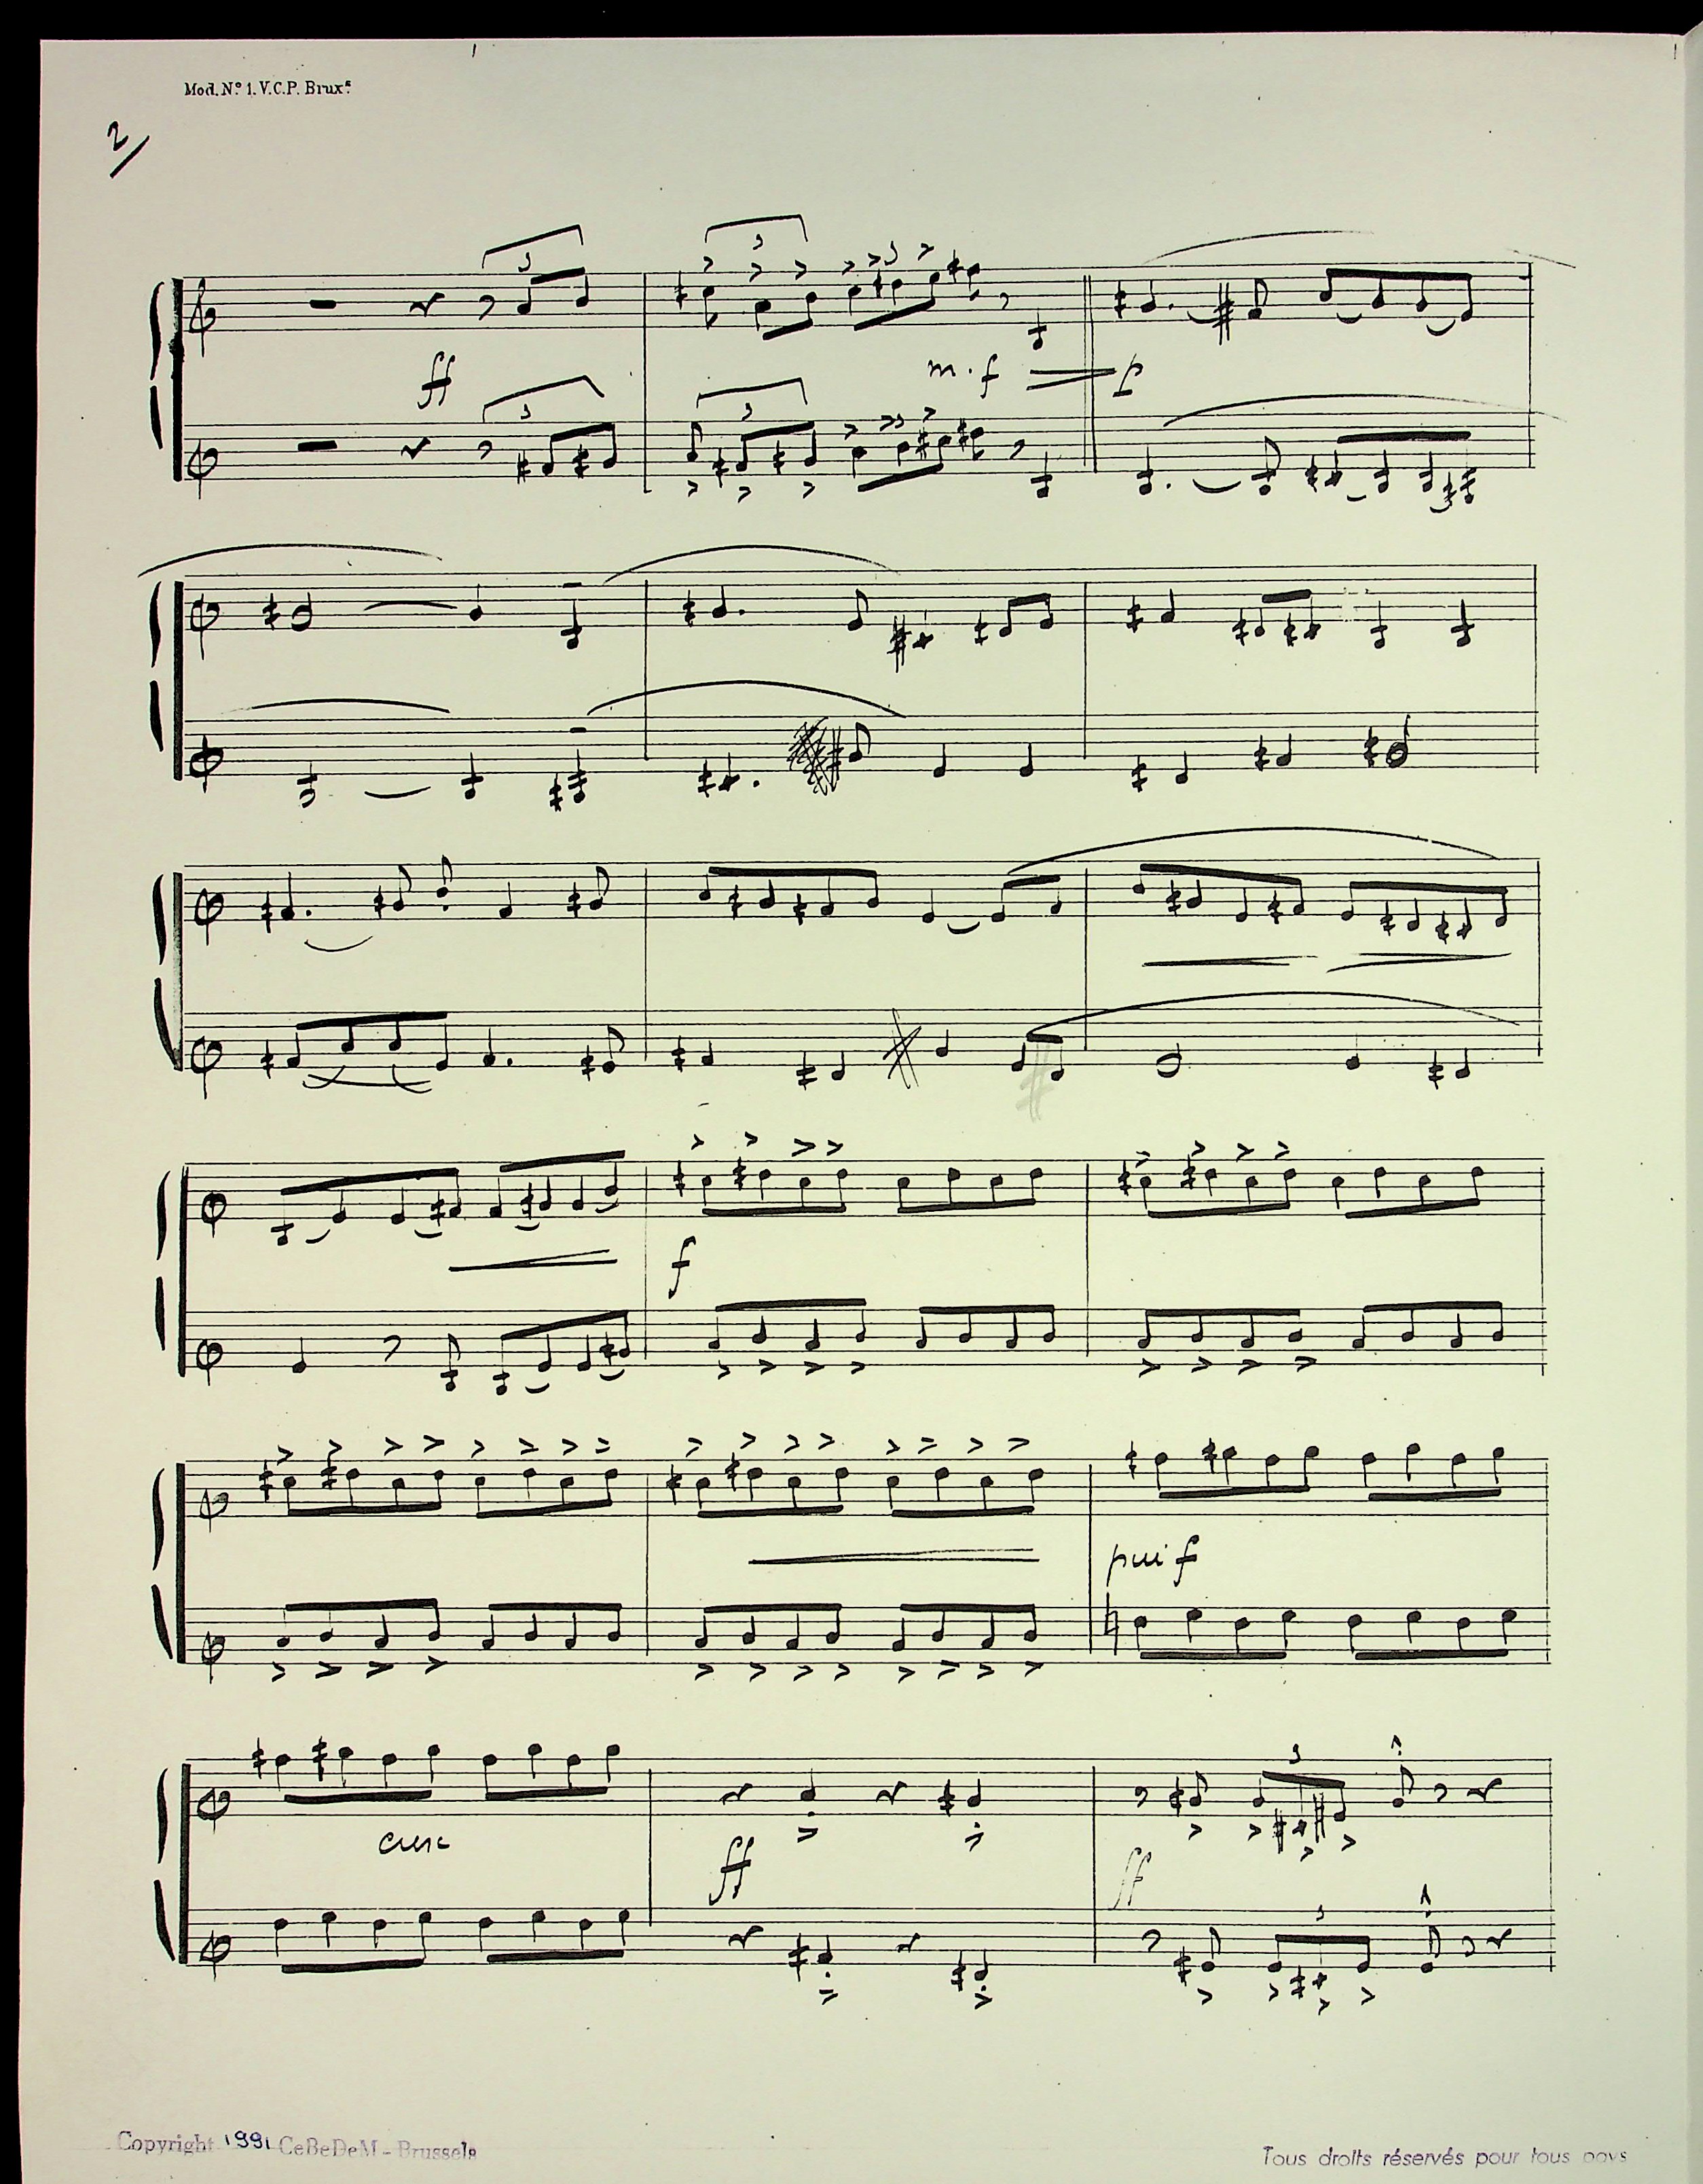 Mod. Nº 1. V.C.P. Brux.
2/
3
3
3
ff
m.f
p
3
3
f
più f
cresc
3
ff
ff
3
Copyright 1991 CeBeDeM - Brussels
Tous droits réservés pour tous pays